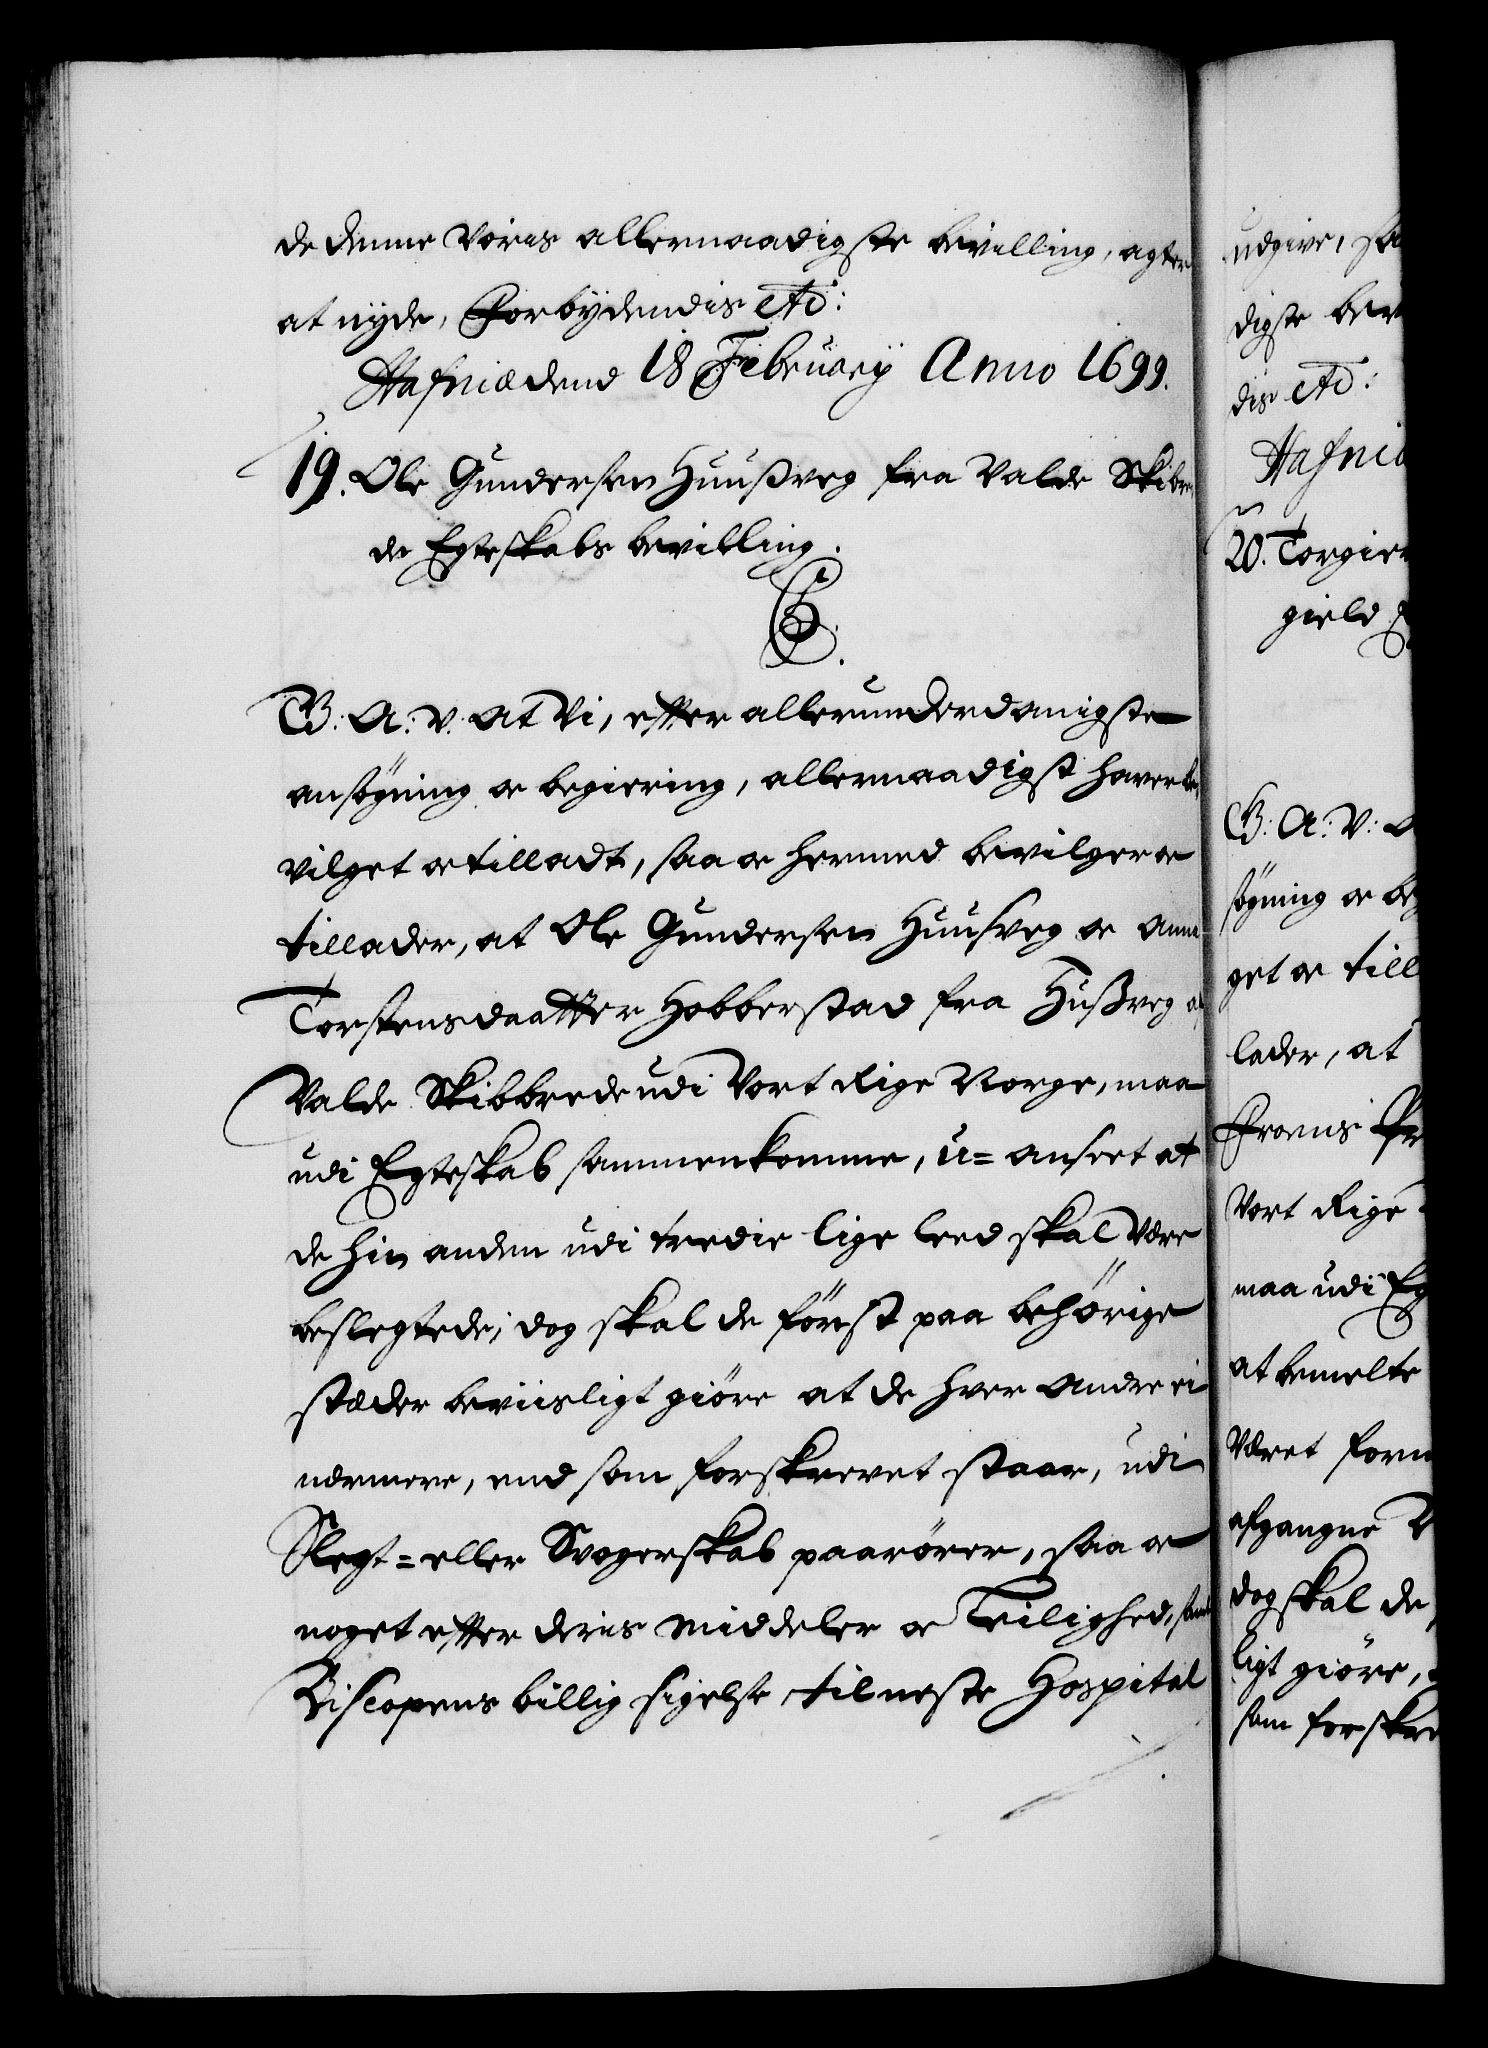 de denne Voris allernaadigste bevilling, agter
at nyde, Forbydendis etc:
Hafniæ dend 18 February Anno 1699.
19. Ole Gundersen Huusveg fra Valde Skibre
de Egteskabs bevilling.
C5.
G: A: V: at Vi, efter allerunderdanigste
ansøgning oc begiering, allernaadigst haver be
vilget oc tilladt, saa oc hermed bevilger oc
tillader, at Ole Gundersen Huusveg oc Anna
Torstensdaatter Hobberstad fra Husveg af
Valde Skibbrede udi Vort Rige Norge, maa
udi Egteskab sammenkomme, u=anseet at
de hin anden udi tredie lige leed skal være
beslegtede; dog skal de først paa behörige
stæder beviisligt giöre at de hver andre ei
nærmere, end som forskrevet staar, udi
Slegt= eller Svogerskab paarörer, saa oc
noget efter deris middeler oc Leilighed, samt
Biscopens billig sigelse til neste Hospital
udgive, sa
digste bev
dis etc:
Hafniæ
20. Torgier
gield
G: A: V: a
søgning oc beg
get oc till
lader, at
Froens Pr
Vort Rige
maa udi Eg
at bemelte
Været form
afgangne
dog skal de
ligt giöre,
som forskre